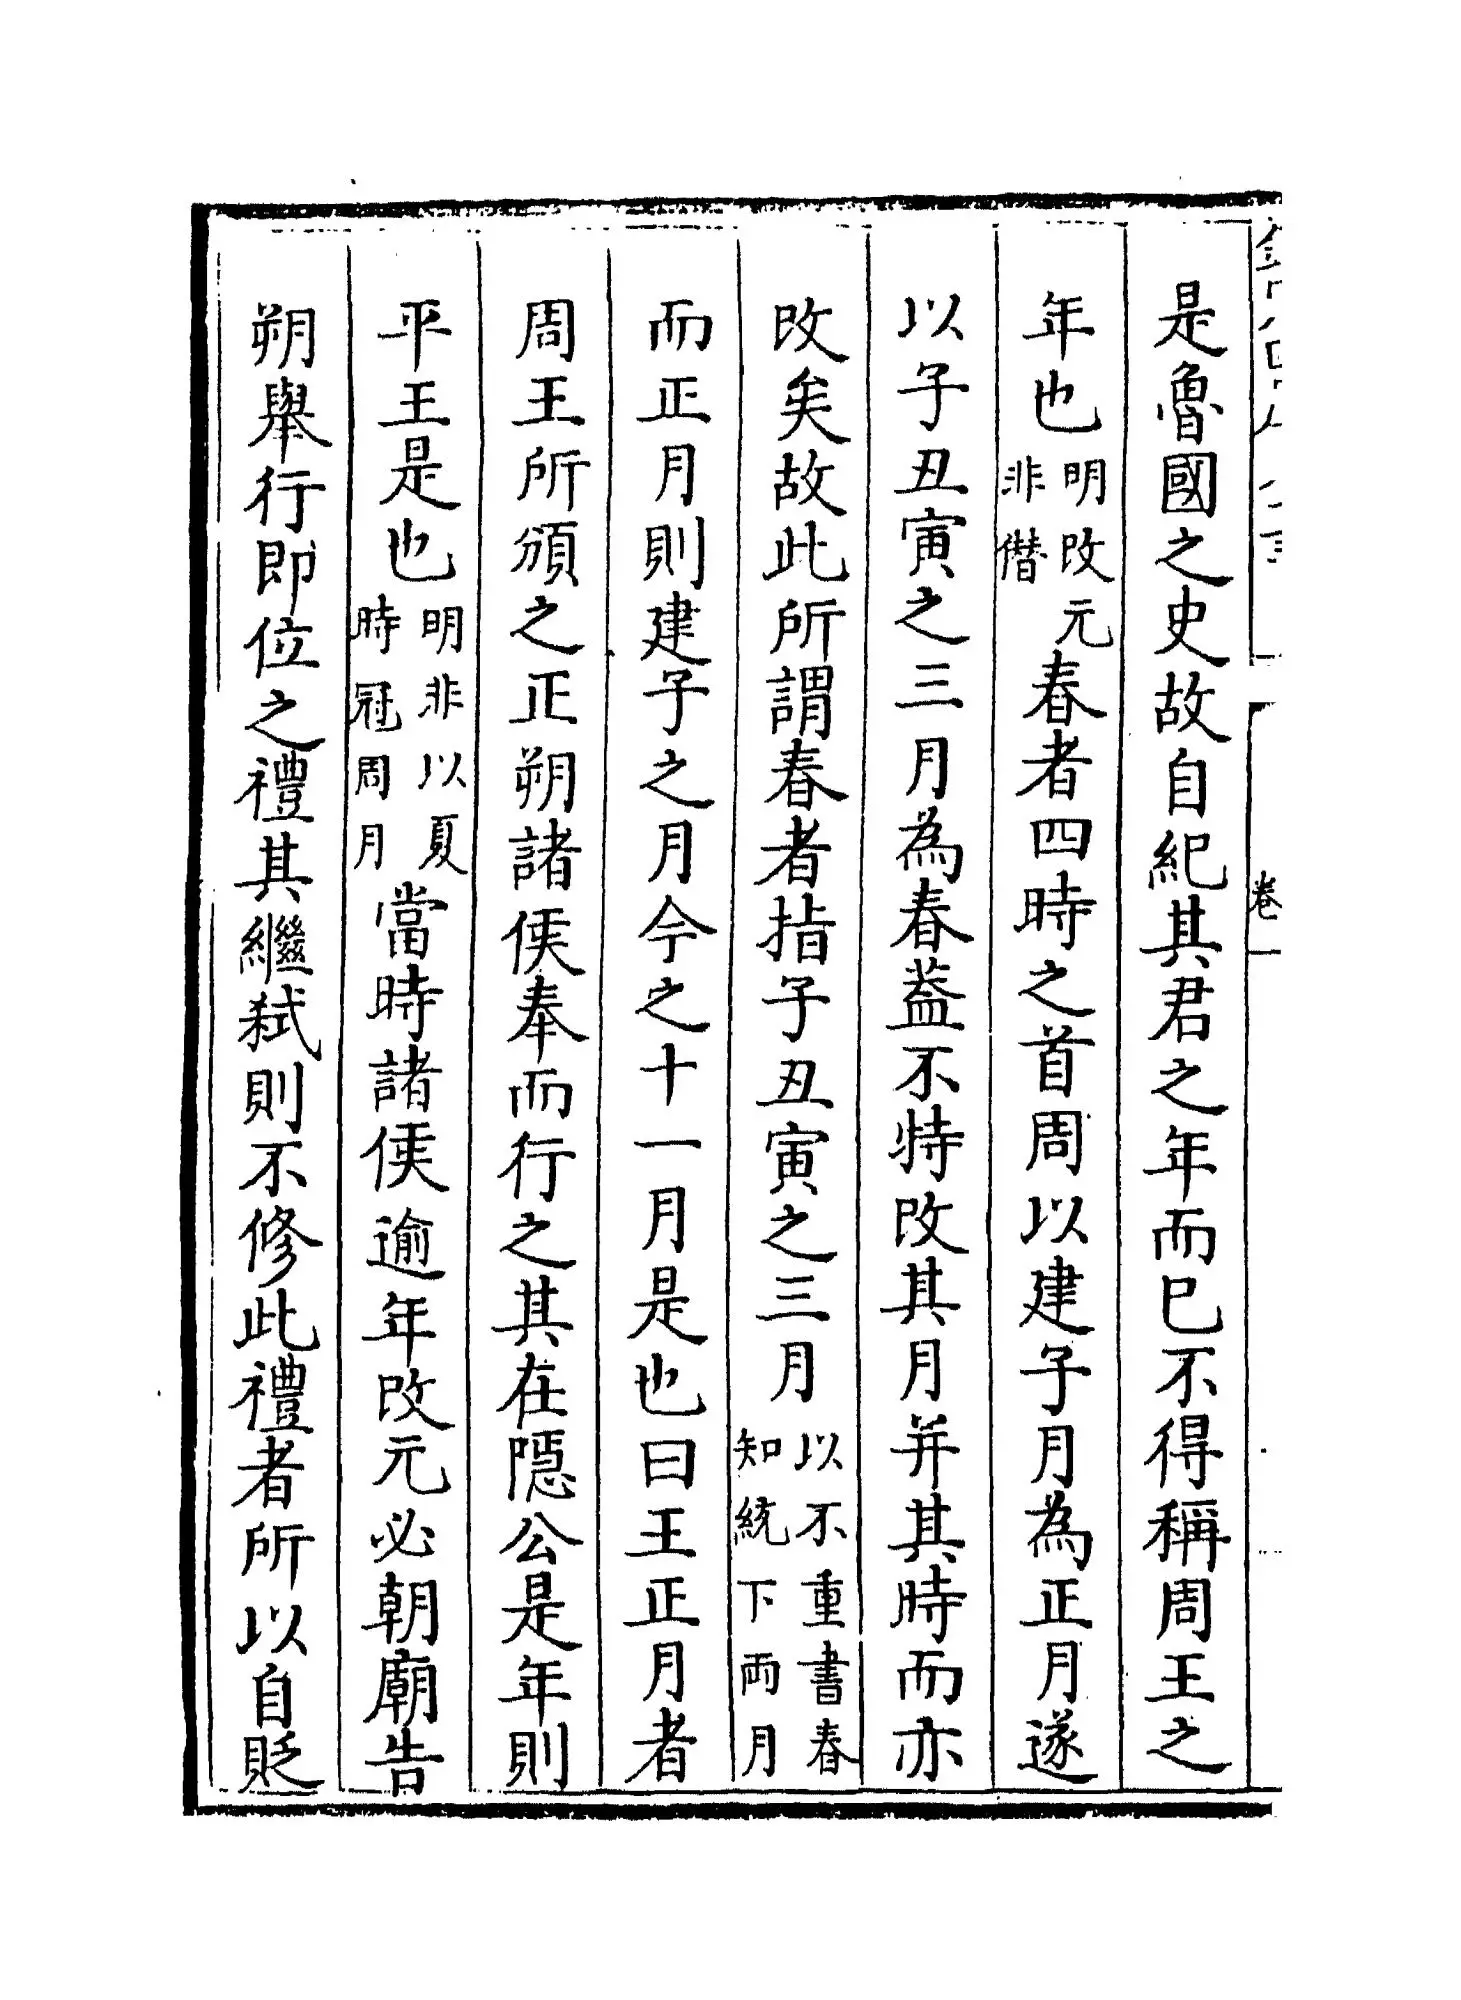 是魯國之史故自紀其君之年而已不得稱周王之
年也明改元非僭春者四時之首周以建子月為正月遂
以子丑寅之三月為春葢不特改其月并其時而亦
改矣故此所謂春者指子丑寅之三月以不重書春知統下兩月
而正月則建子之月今之十一月是也曰王正月者
周王所頒之正朔諸侯奉而行之其在隱公是年則
平王是也明非以夏時冠周月當時諸侯逾年改元必朝廟告
朔舉行即位之禮其繼弒則不修此禮者所以自貶
卷一